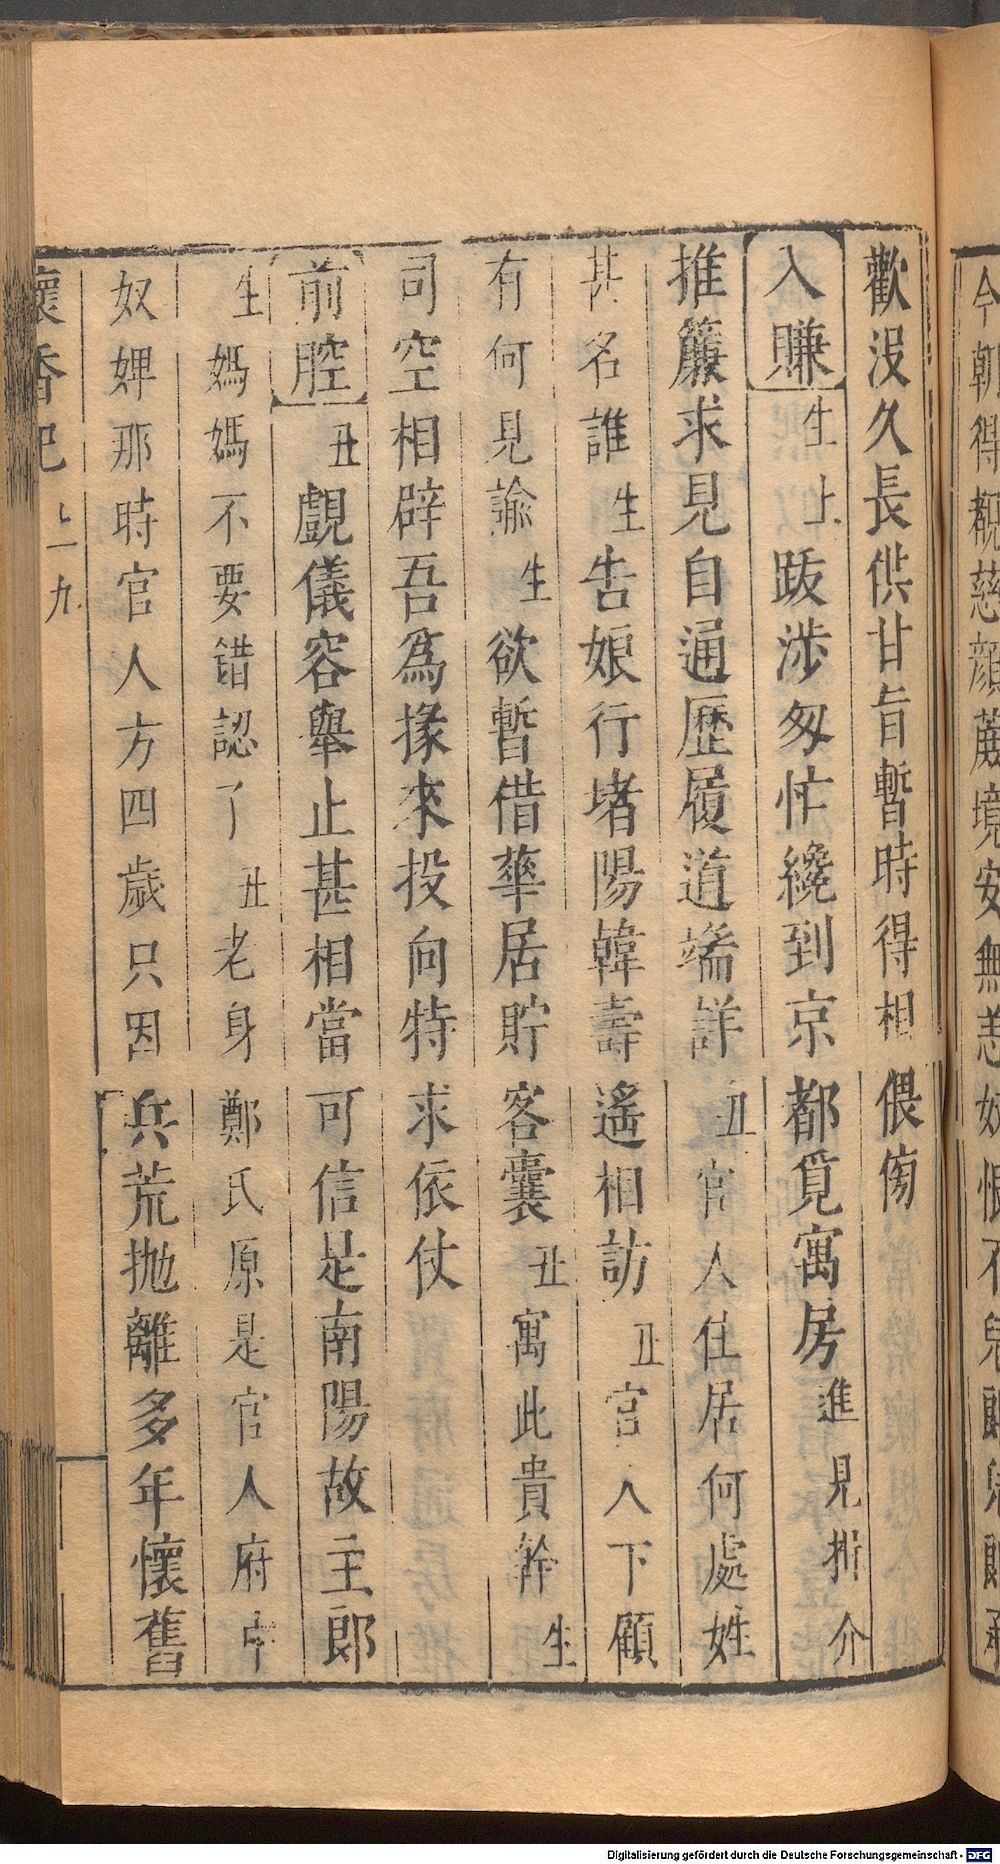 歡沒久長供甘旨暫時得相偎傍
入賺生上跋涉匆忙纔到京都覓寓房進見揖介
推簾求見自通歷履道端詳丑官人住居何處姓
甚名誰生告娘行堵陽韓壽遙相訪丑官人下顧
有何見諭生欲暫借華居貯客囊丑寓此貴幹生
司空相辟吾為掾來投向特求依仗
前腔丑覷儀容舉止甚相當可信是南陽故主郎
生媽媽不要錯認了丑老身鄭氏原是官人府中
奴婢那時官人方四歲只因兵荒拋離多年懷舊
懷香記 上 一九
今朝得覩慈顏蔗境安無恙
Digitalisierung gefördert durch die Deutsche Forschungsgemeinschaft - DFG